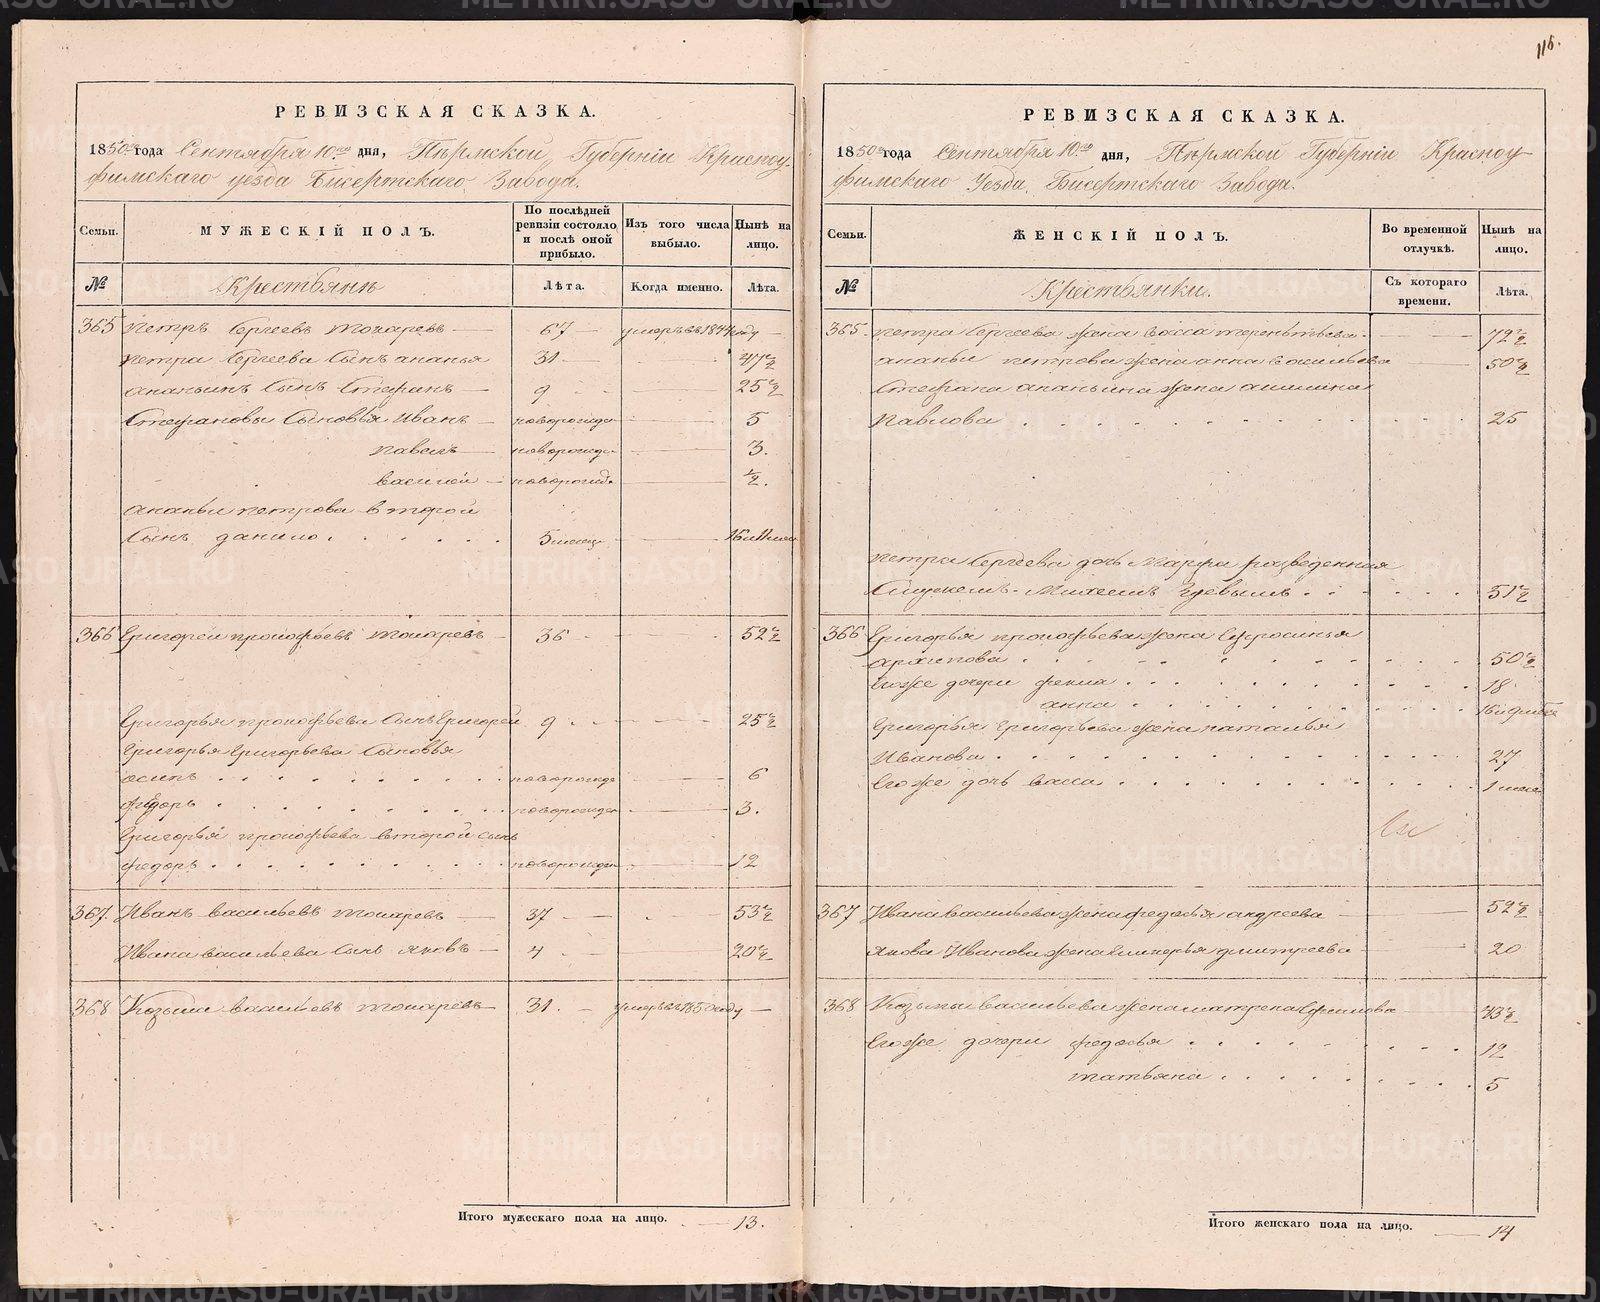 115.
РЕВИЗСКАЯ СКАЗКА.
1850го года Сентября 10го дня, Пермской Губерніи Красноу-
фимскаго уезда Бисертскаго Завода.
Семьи. МУЖЕСКІЙ ПОЛЪ. По послѣдней ревизіи состояло и послѣ оной прибыло. Изъ того числа выбыло. Нынѣ на лицо.
№ Крестьянъ Лѣта. Когда именно. Лѣта.
365 Петръ Сергеевъ Токаревъ 67 умеръ в 1844 году
Петра Сергеева Сынъ ананья 31 47 1/2
ананьинъ Сынъ Стефанъ 9 25 1/2
Стефановы Сыновья Иванъ новорожде 5
павелъ новорожде 3.
василей новорожд. 1/2.
ананьи петрова второй
Сынъ данило 5 месец 16 и 11 мес
366 Григорей прокофьевъ Токаревъ 36 52 1/2
Григорья прокофьева Сынъ Григорей 9 25 1/2
Григорья Григорьева Сыновья
осипъ новорожде 6
федоръ новорожде 3.
Григорья прокофьева второй сынъ
федоръ новорожден 12
367. Иванъ васильевъ Токаревъ 37 53 1/2
Ивана васильева Сынъ яковъ 4 20 1/2
368 Козьма васильевъ Токаревъ 31. умеръ в 1850 году
Итого мужескаго пола на лицо. 13.
РЕВИЗСКАЯ СКАЗКА.
1850го года Сентября 10го дня, Пермской Губерніи Красноу
фимскаго Уезда Бисертскаго Завода.
Семьи. ЖЕНСКІЙ ПОЛЪ. Во временной отлучкѣ. Нынѣ на лицо.
№ Крестьянки. Съ котораго времени. Лѣта.
365. петра Сергеева жена васса терентьева 72 1/2
ананьи петрова жена анна васильева 50 1/2
Стефана ананьина жена
Павлова 25
петра Сергеева дочь Марфа разведенная
Смужемъ Михеемъ 51 1/2
366 Григорья прокофьева жена Ефросинья
архипова 50 1/2
Егоже дочери фекла 18
анна 16 и 9 мес
Григорья Григорьева жена наталья
Иванова 27
Егоже дочь васса 1 меся
367 Ивана васильева жена федосья андреева 52 1/2
якова Иванова жена дмитреева 20
368 Козьмы васильева жена матрена Ефимова 43 1/2
Егоже дочери федосья 12
татьяна 5
Итого женскаго пола на лицо. 14
METRIKI.GASO-URAL.RU